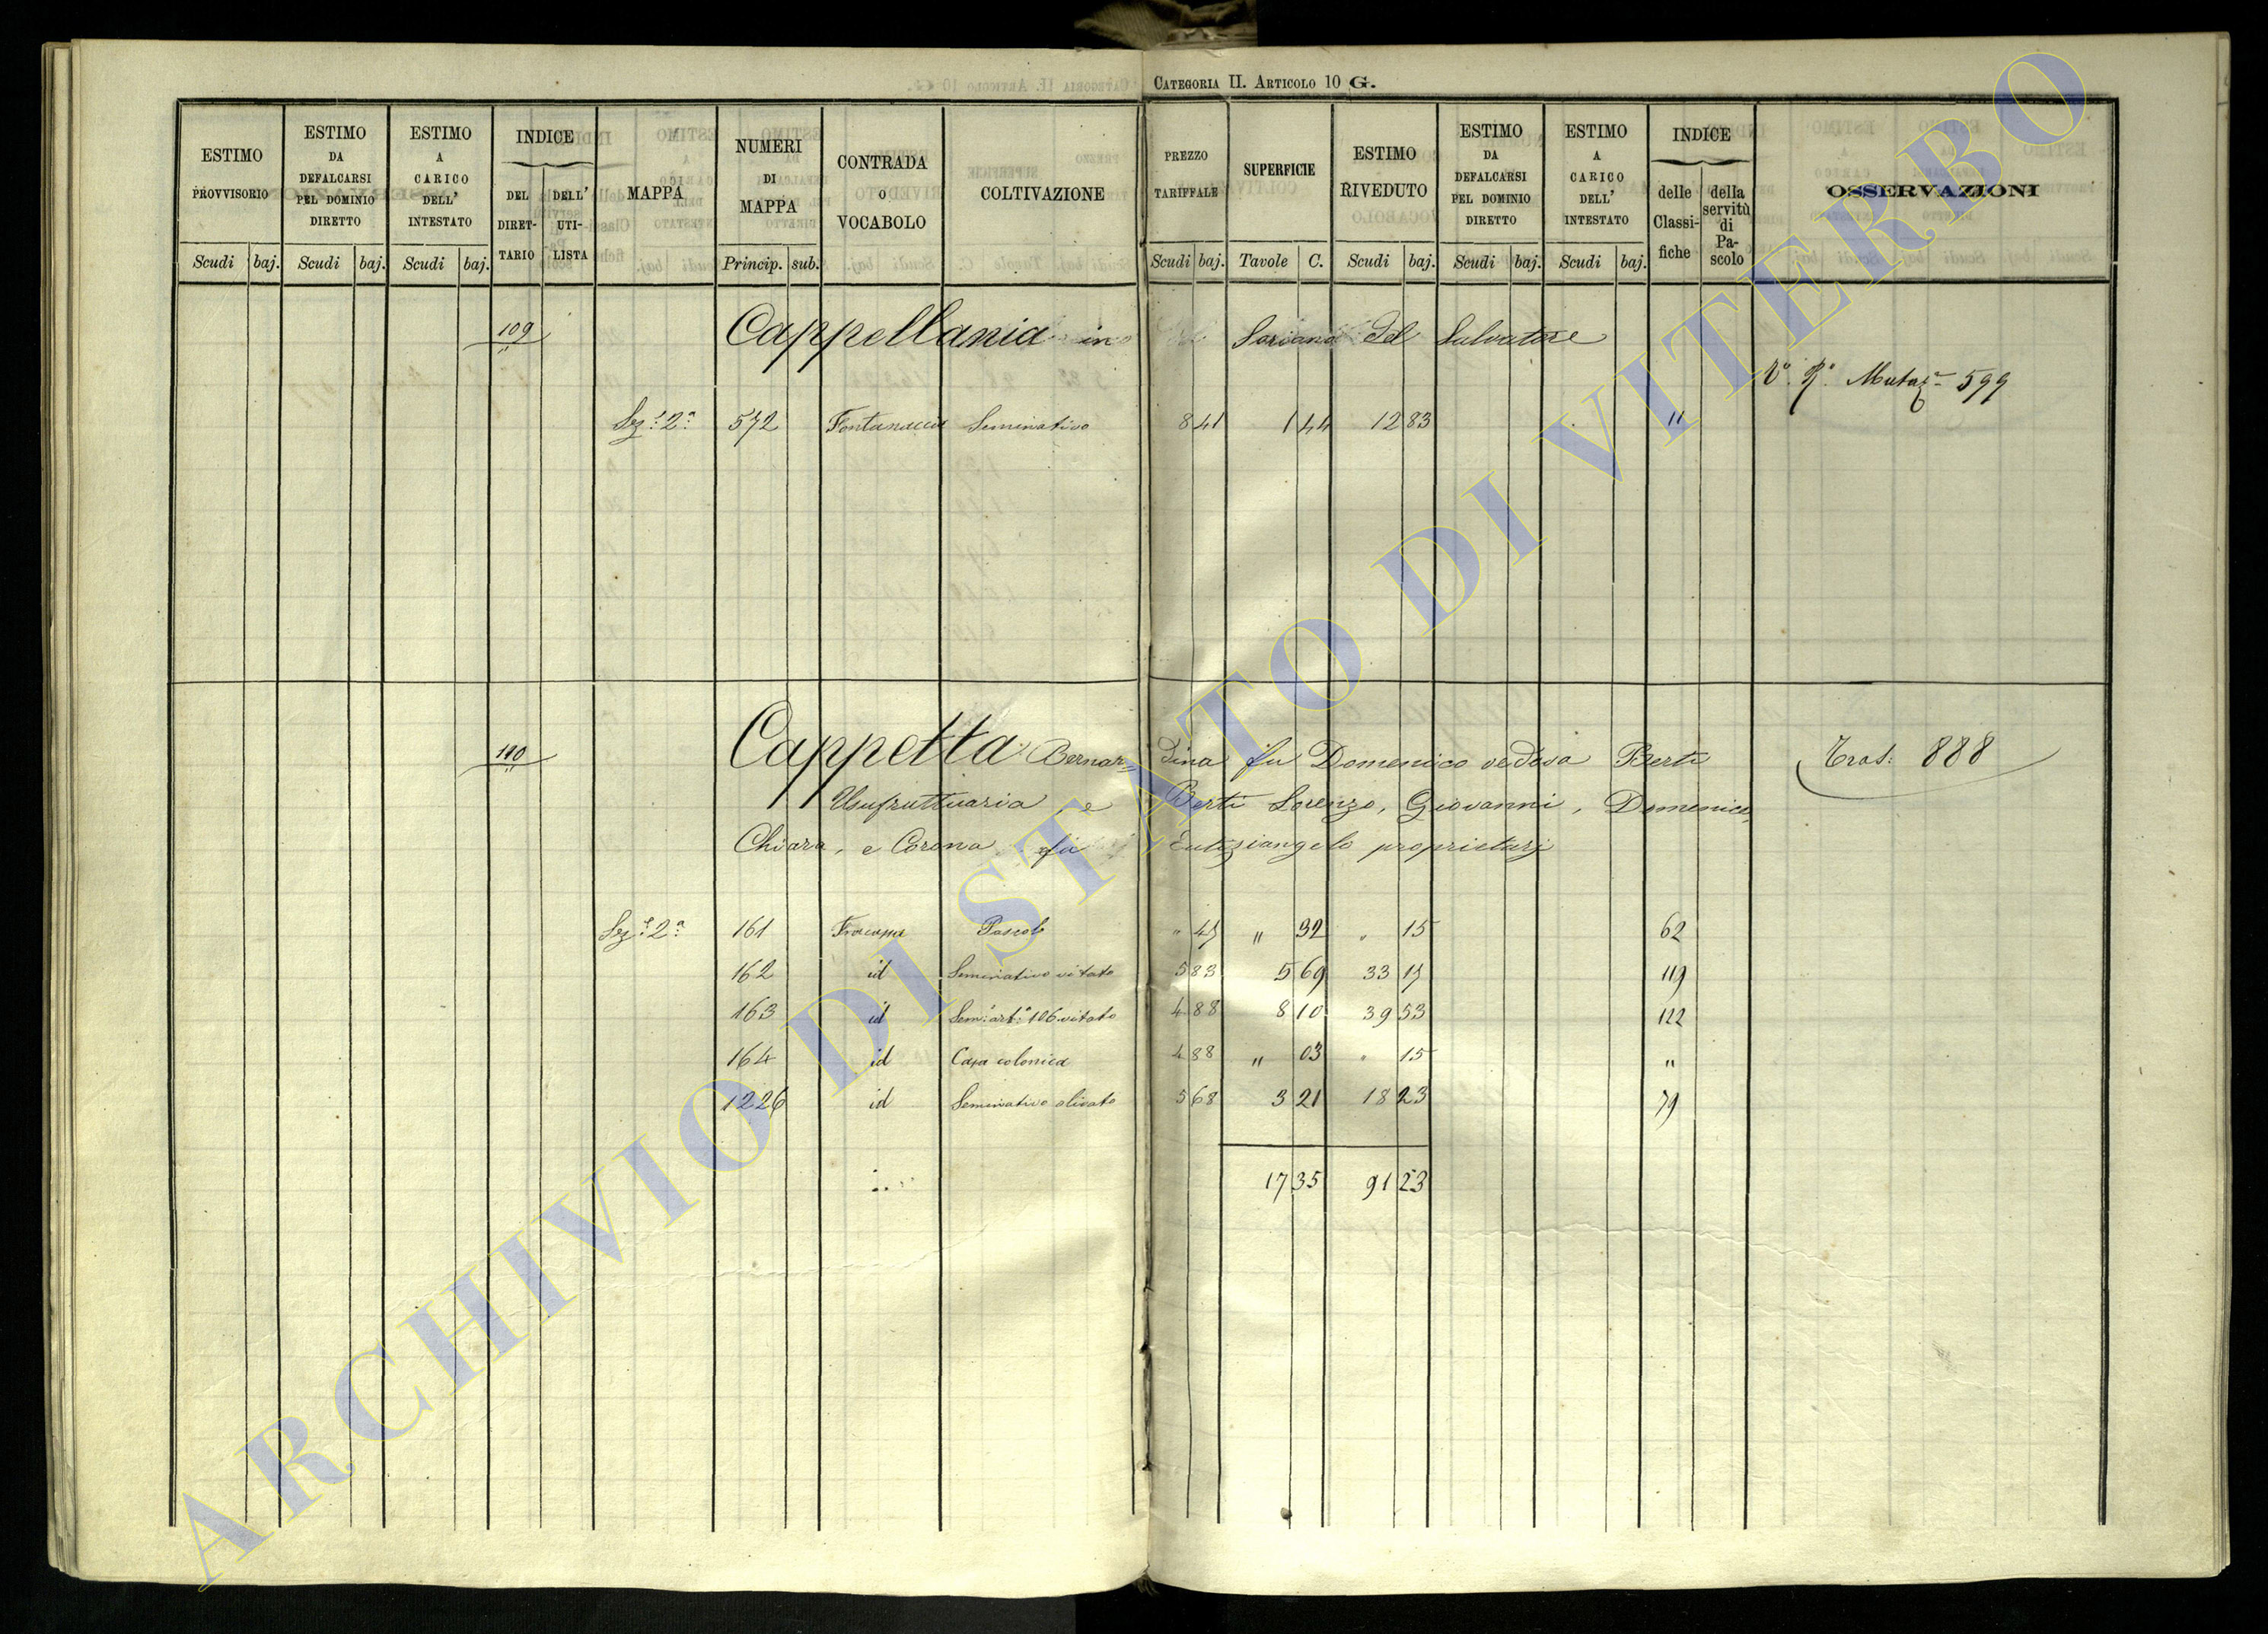 CATEGORIA II. ARTICOLO 10 G.
ESTIMO PROVVISORIO
ESTIMO DA DEFALCARSI PEL DOMINIO DIRETTO
ESTIMO A CARICO DELL' INTESTATO
INDICE
DEL DIRET-TARIO
DELL' UTI-LISTA
MAPPA
NUMERI DI MAPPA
CONTRADA O VOCABOLO
COLTIVAZIONE
PREZZO TARIFFALE
SUPERFICIE
ESTIMO RIVEDUTO
ESTIMO DA DEFALCARSI PEL DOMINIO DIRETTO
ESTIMO A CARICO DELL' INTESTATO
INDICE
delle Classi-fiche
della servitù di Pa-scolo
OSSERVAZIONI
Scudi baj. Scudi baj. Scudi baj. Princip. sub. Scudi baj. Tavole C. Scudi baj. Scudi baj. Scudi baj.
109 Cappellania in Soriano del Salvatore
V.° R.° Mutaz.e 599
Sez.e 2a 572 Fontanaccia Seminativo 8 41 1 44 12 83 11
110 Cappetta Bernar= dina fu Domenico vedova Berti Tras: 888
Usufruttuaria, e Berti Lorenzo, Giovanni, Domenico,
Chiara, e Corona fu Eutiziangelo proprietarj
Sez.e 2a 161 Pascolo " 47 " 32 " 15 62
162 id Seminativo vitato 5 83 5 69 33 17 119
163 id Sem: art.° 106 vitato 4 88 8 10 39 53 122
164 id Casa colonica 4 88 " 03 " 15 "
1226 id Seminativo olivato 5 68 3 21 18 23 79
17 35 91 23
ARCHIVIO DI STATO DI VITERBO